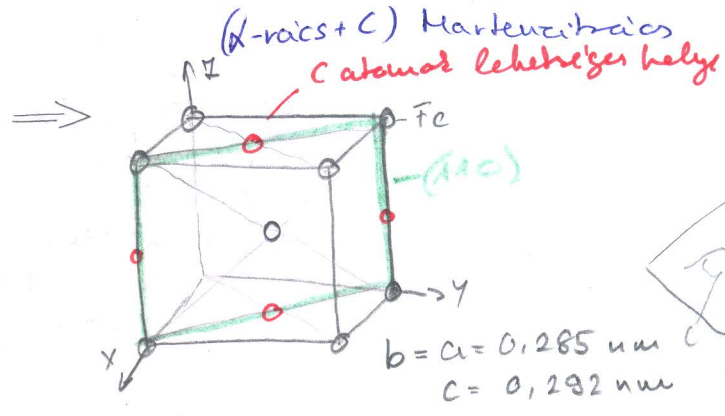 (α-rács + C) Martenzitrács
C atomok lehetséges helye
Z
Fe
(110)
Y
X
b = a = 0,285 nm
c = 0,292 nm
C